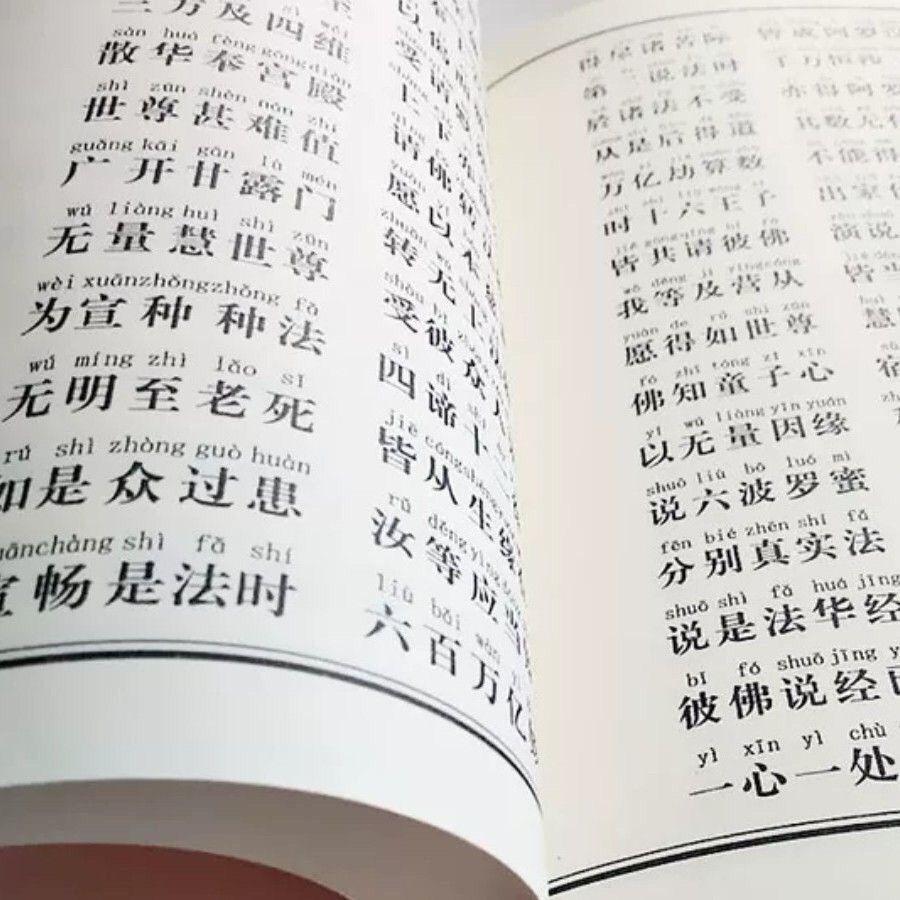 三方及四维
sàn huá fèng gōng diàn
散华奉宫殿
shì zūn shèn nán zhí
世尊甚难值
guǎng kāi gān lù mén
广开甘露门
wú liàng huì shì zūn
无量慧世尊
wèi xuān zhǒng zhǒng fǎ
为宣种种法
wú míng zhì lǎo sǐ
无明至老死
rú shì zhòng guò huàn
如是众过患
chàng shì fǎ shí
畅是法时
上下
请佛
愿以本
zhuǎn wú
转无上
shòu bǐ
受彼众人
sì dì
四谛十二
jiē cóng shēng
皆从生缘
rǔ děng yīng
汝等应当
liù bǎi wàn
六百万亿
得尽诸苦际
第二说法时
於诸法不受
从是后得道
万亿劫算数
时十六王子
jiē gòng qǐng bǐ fó
皆共请彼佛
wǒ děng jí yíng cóng
我等及营从
yuàn dé rú shì zūn
愿得如世尊
fó zhī tóng zǐ xīn
佛知童子心
yǐ wú liàng yīn yuán
以无量因缘
shuō liù bō luó mì
说六波罗蜜
fēn bié zhēn shí fǎ
分别真实法
shuō shì fǎ huá jīng
说是法华经
bǐ fó shuō jīng
彼佛说经已
yì xīn yì chù
一心一处
皆成阿罗汉
千万恒
亦得阿罗
其数无有
不能得
出家作
演说
皆当
慧
宿